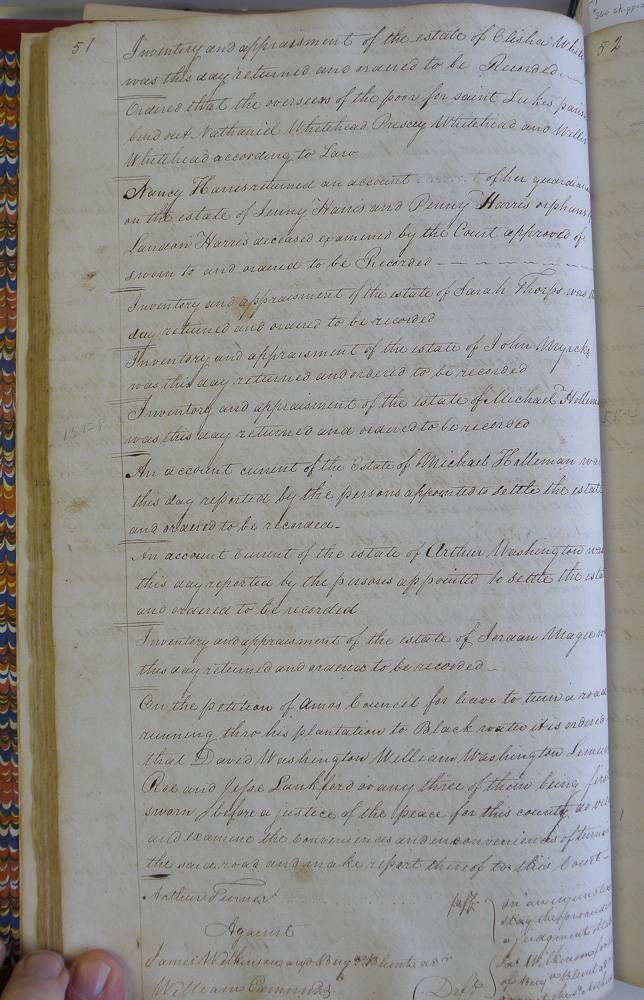 51
52
Inventory and appraisment of the estate of Elisha
was this day returned and ordered to be Recorded
Ordered that the overseers of the poor for saint Lukes
bind out Nathaniel Whitehead Prescey Whitehead and
Whitehead according to Law
Nancy Harris returned an account of her
on the estate of Jenny Harris and Penny Harris orphans
Landon Harris deceased examined by the Court approved of
sworn to and ordered to be Recorded
Inventory and appraisment of the estate of Sarah Thorps was
day returned and ordered to be recorded
Inventory and appraisment of the estate of John Myrick
was this day returned and ordered to be recorded
Inventory and appraisment of the estate of Michael
was this day returned and ordered to be recorded
An account current of the Estate of Michael Holleman
this day reported by the persons appointed to settle the
and ordered to be recorded
An account Current of the estate of Arthur Washington
this day reported by the persons appointed to settle the
and ordered to be recorded
Inventory and appraisment of the estate of Jordan Magee
this day returned and ordered to be recorded
On the petition of Amos Council for leave to turn a road
running thro his plantation to Black water it is ordered
that David Washington William Washington
Roe and Jesse Lankford or any three of them being
sworn before a justice of the peace for this county do
and examine the conveniences and inconveniences of
the said road and make report thereof to this Court
Arthur Turner
Against
James Wilkinson and
William